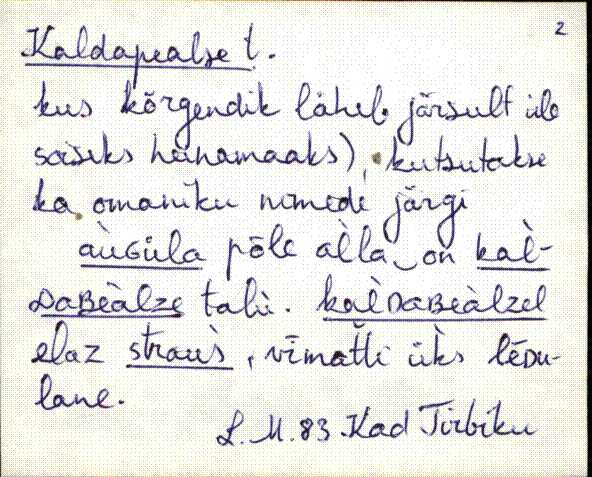 2
Kaldapealse t.
kus kõrgendik läheb järsult üle
soiseks heinamaaks), kutsutakse
ka omaniku nimede järgi
àùGùla põle àl̀la on kal̀-
DaBèàlze talù. kal̀DaBèàlzel
elaz straus̀, vīmat̀ti ùks lēDu-
lane.
L.M. 83. Kad Tirbiku